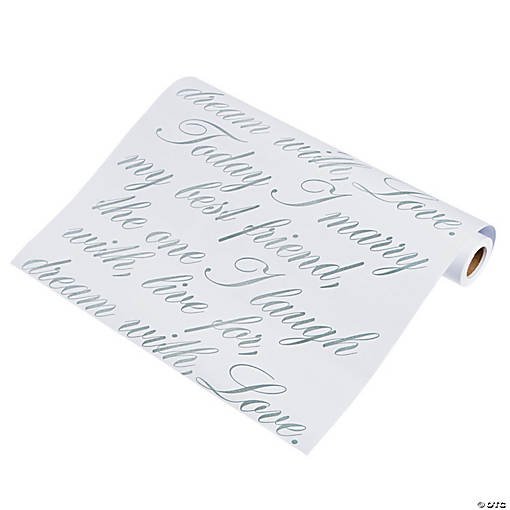 dream with, Love.
Today I marry
my best friend,
the one I laugh
with, live for,
dream with, Love.
© OTC